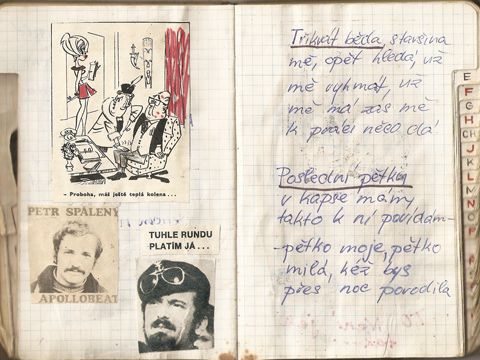 - Proboha, máš ještě teplá kolena...
PETR SPÁLENÝ
APOLLOBEAT
TUHLE RUNDU
PLATÍM JÁ...
Třikrát běda, staršina
mě, opět hledá, už
mě vyhmát, už
mě má zas mě
k práci něco dá
Poslední pětku
v kapse mám,
takto k ní povídám-
-pětko moje, pětko
milá, kéž bys
přes noc porodila
E
F
G
H
CH
J
K
L
M
N
O
P